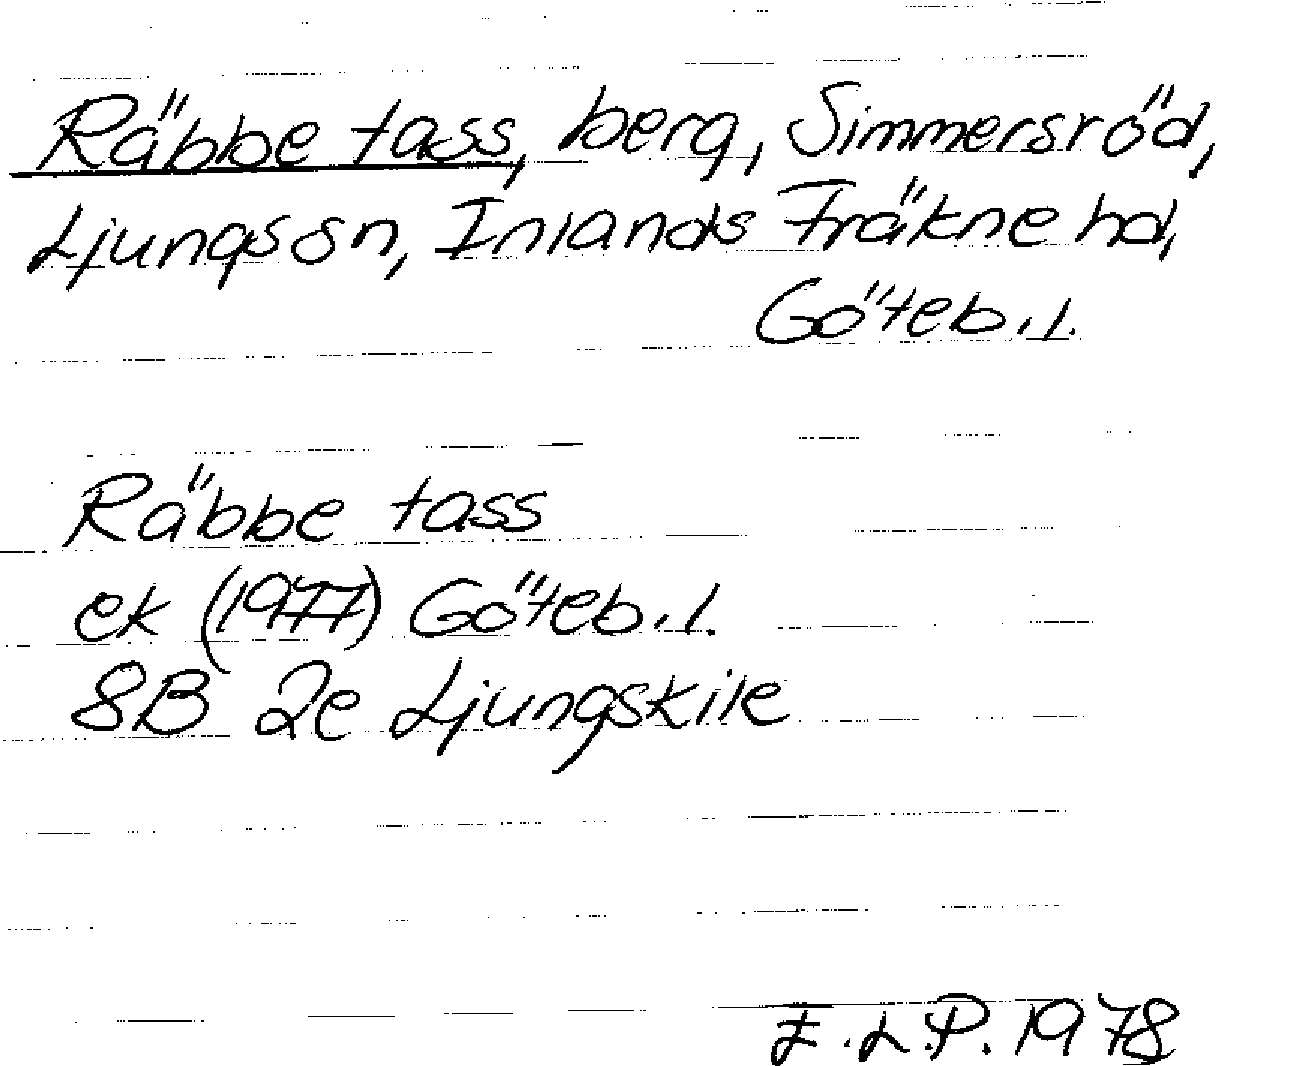 Räbbe tass, berg, Simmersröd,
Ljungs sn, Inlands Fräkne hd,
Göteb. l.
Räbbe tass
ek (1977) Göteb. l.
8B 2e Ljungskile
E.L.P. 1978